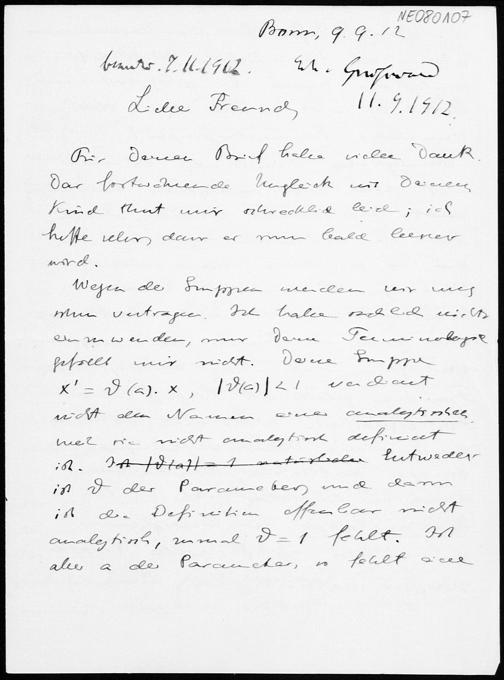 NE080A07
Bonn, 9.9.12
beantw. 7.11.1912. Erh. Grußwand
11.9.1912.
Lieber Freund,
Für Deinen Brief habe vielen Dank.
Das fortwährende Unglück mit Deinem
Kind thut mir schrecklich leid; ich
hoffe sehr, dass es nun bald besser
wird.
Wegen der Gruppen werden wir uns
schon vertragen. Ich habe sachlich nichts
einzuwenden, nur Deine Terminologie
gefällt mir nicht. Deine Gruppe
x' = ϑ(a). x, |ϑ(a)| < 1 verdient
nicht den Namen einer analytischen,
weil sie nicht analytisch definiert
ist. Ist |ϑ(a)| = 1 Entweder
ist ϑ der Parameter, und dann
ist die Definition offenbar nicht
analytisch, zumal ϑ = 1 fehlt. Ist
aber a der Parameter, so fehlt eine